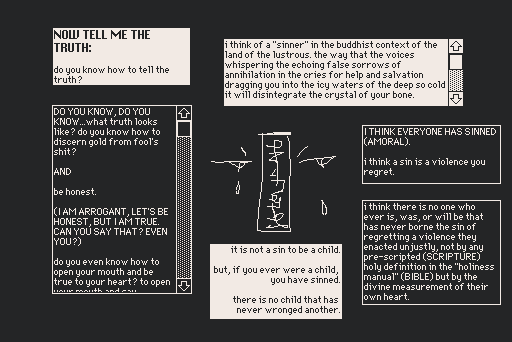 NOW TELL ME THE
TRUTH:
do you know how to tell the
truth?
i think of a "sinner" in the buddhist context of the
land of the lustrous. the way that the voices
whispering the echoing false sorrows of
annihilation in the cries for help and salvation
dragging you into the icy waters of the deep so cold
it will disintegrate the crystal of your bone.
DO YOU KNOW, DO YOU
KNOW...what truth looks
like? do you know how to
discern gold from fool's
shit?
AND
be honest.
(I AM ARROGANT, LET'S BE
HONEST, BUT I AM TRUE.
CAN YOU SAY THAT? EVEN
YOU?)
do you even know how to
open your mouth and be
true to your heart? to open
your mouth and say
I THINK EVERYONE HAS SINNED
(AMORAL).
i think a sin is a violence you
regret.
i think there is no one who
ever is, was, or will be that
has never borne the sin of
regretting a violence they
enacted unjustly, not by any
pre-scripted (SCRIPTURE)
holy definition in the "holiness
manual" (BIBLE) but by the
divine measurement of their
own heart.
it is not a sin to be a child.
but, if you ever were a child,
you have sinned.
there is no child that has
never wronged another.